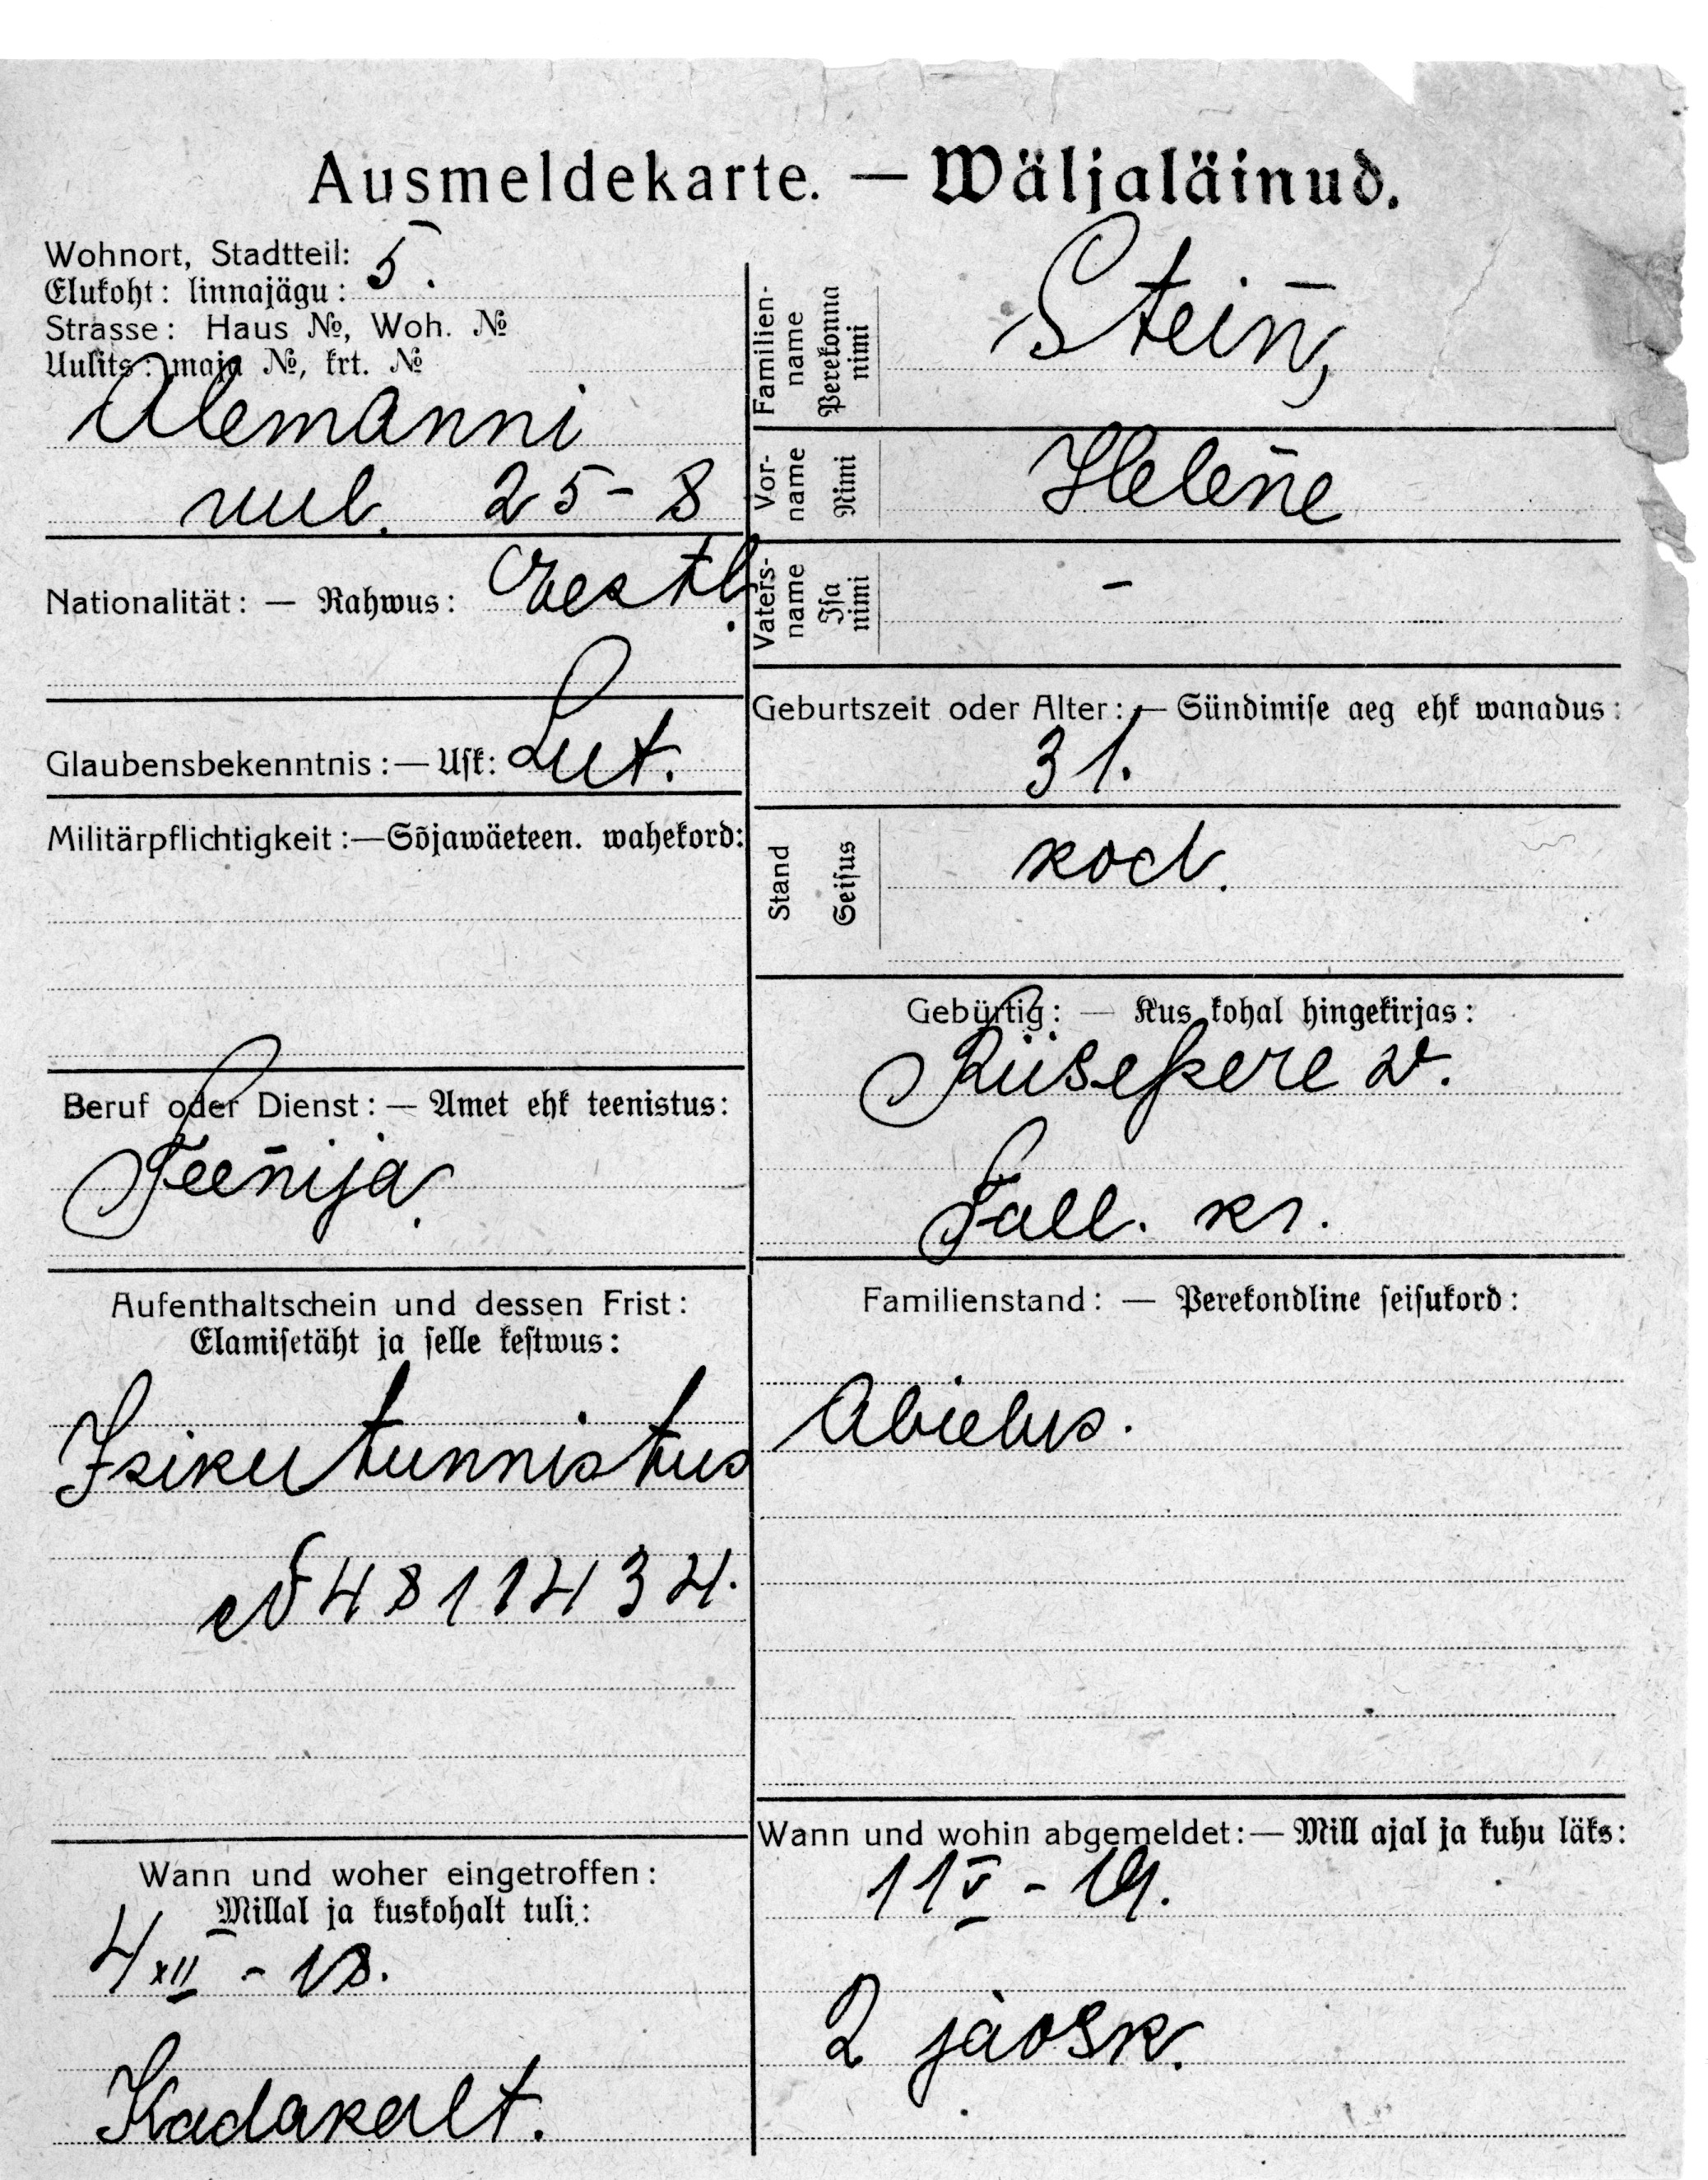 Ausmeldekarte. — Wäljaläinud.
Wohnort, Stadtteil: 5.
Elukoht: linnajägu:
Strasse: Haus №, Woh. №
Uulits: maja №, krt. №
Alemanni
uul. 25-8
Nationalität: — Rahwus: Eestl.
Glaubensbekenntnis: — Usk: Lut.
Militärpflichtigkeit: — Sõjawäeteen. wahekord:
Beruf oder Dienst: — Amet ehk teenistus:
Teenija.
Aufenthaltschein und dessen Frist:
Elamisetäht ja selle kestwus:
Isiku tunnistus
№ 4811434.
Wann und woher eingetroffen:
Millal ja kuskohalt tuli:
4 XII - 18.
Kadakalt.
Familien-
name
Perekonna
nimi
Stein,
Vor-
name
Nimi
Helene
Vaters-
name
Isa
nimi
-
Geburtszeit oder Alter: — Sündimise aeg ehk wanadus:
31.
Stand
Seisus
kod.
Gebürtig: — Kus kohal hingekirjas:
Riisepere v.
Tall. kr.
Familienstand: — Perekondline seisukord:
Abielus.
Wann und wohin abgemeldet: — Mill ajal ja kuhu läks:
11 V - 19.
2 jaosk.